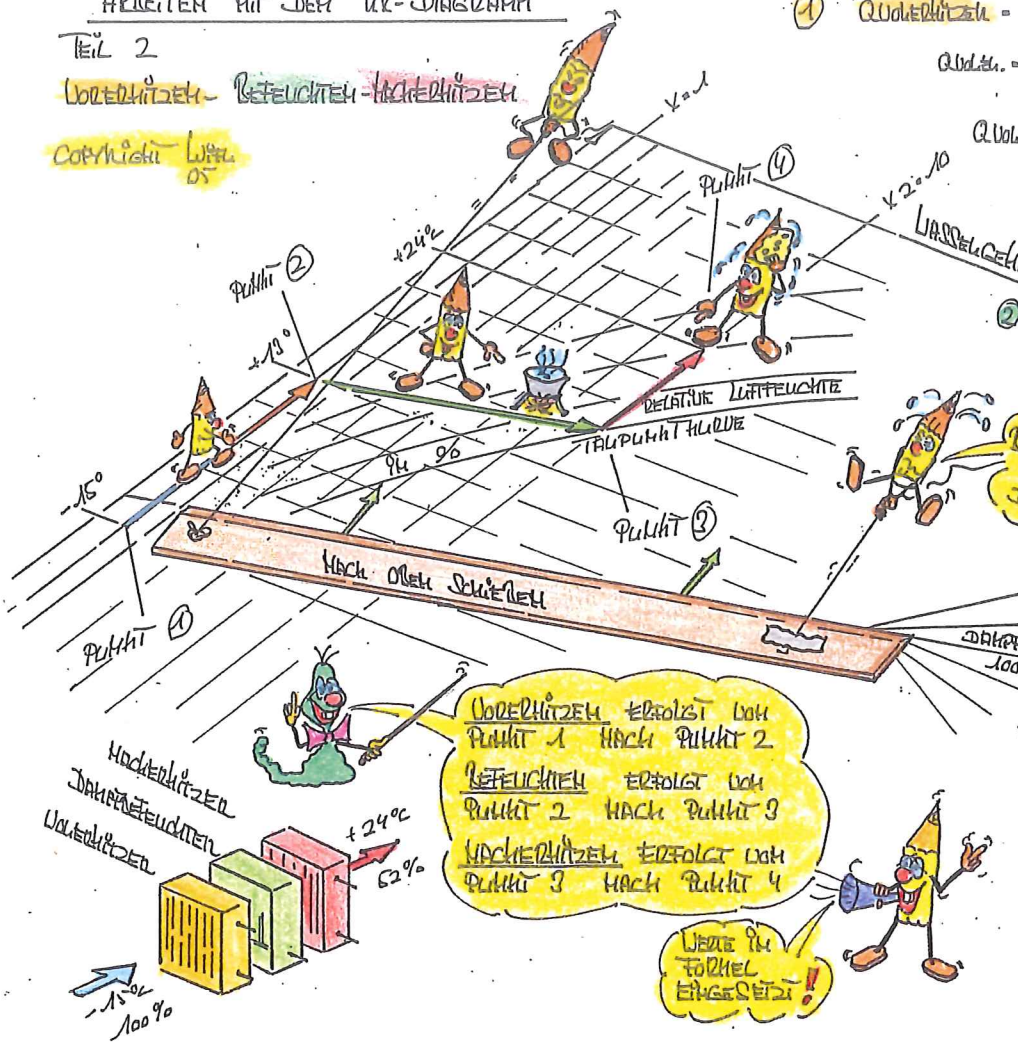 ARBEITEN MIT DEM HX-DIAGRAMM
TEIL 2
VORERHITZEN- BEFEUCHTEN-NACHERHITZEN
COPYRIGHT
05
1 QVORERHITZEN =
X=1
X2=10
PUNKT 4
+24°C
PUNKT 2
+19°
2
-15°
RELATIVE LUFTFEUCHTE
TAUPUNKTKURVE
IN %
PUNKT 3
NACH OBEN SCHIEBEN
PUNKT 1
100
VORERHITZEN ERFOLGT VON
PUNKT 1 NACH PUNKT 2
BEFEUCHTEN ERFOLGT VON
PUNKT 2 NACH PUNKT 3
NACHERHITZEN ERFOLGT VON
PUNKT 3 NACH PUNKT 4
NACHERHITZER
DAMPFBEFEUCHTER
VORERHITZER
+24°C
52%
-15°C
100%
WERTE IN
FORMEL
EINGESETZT!